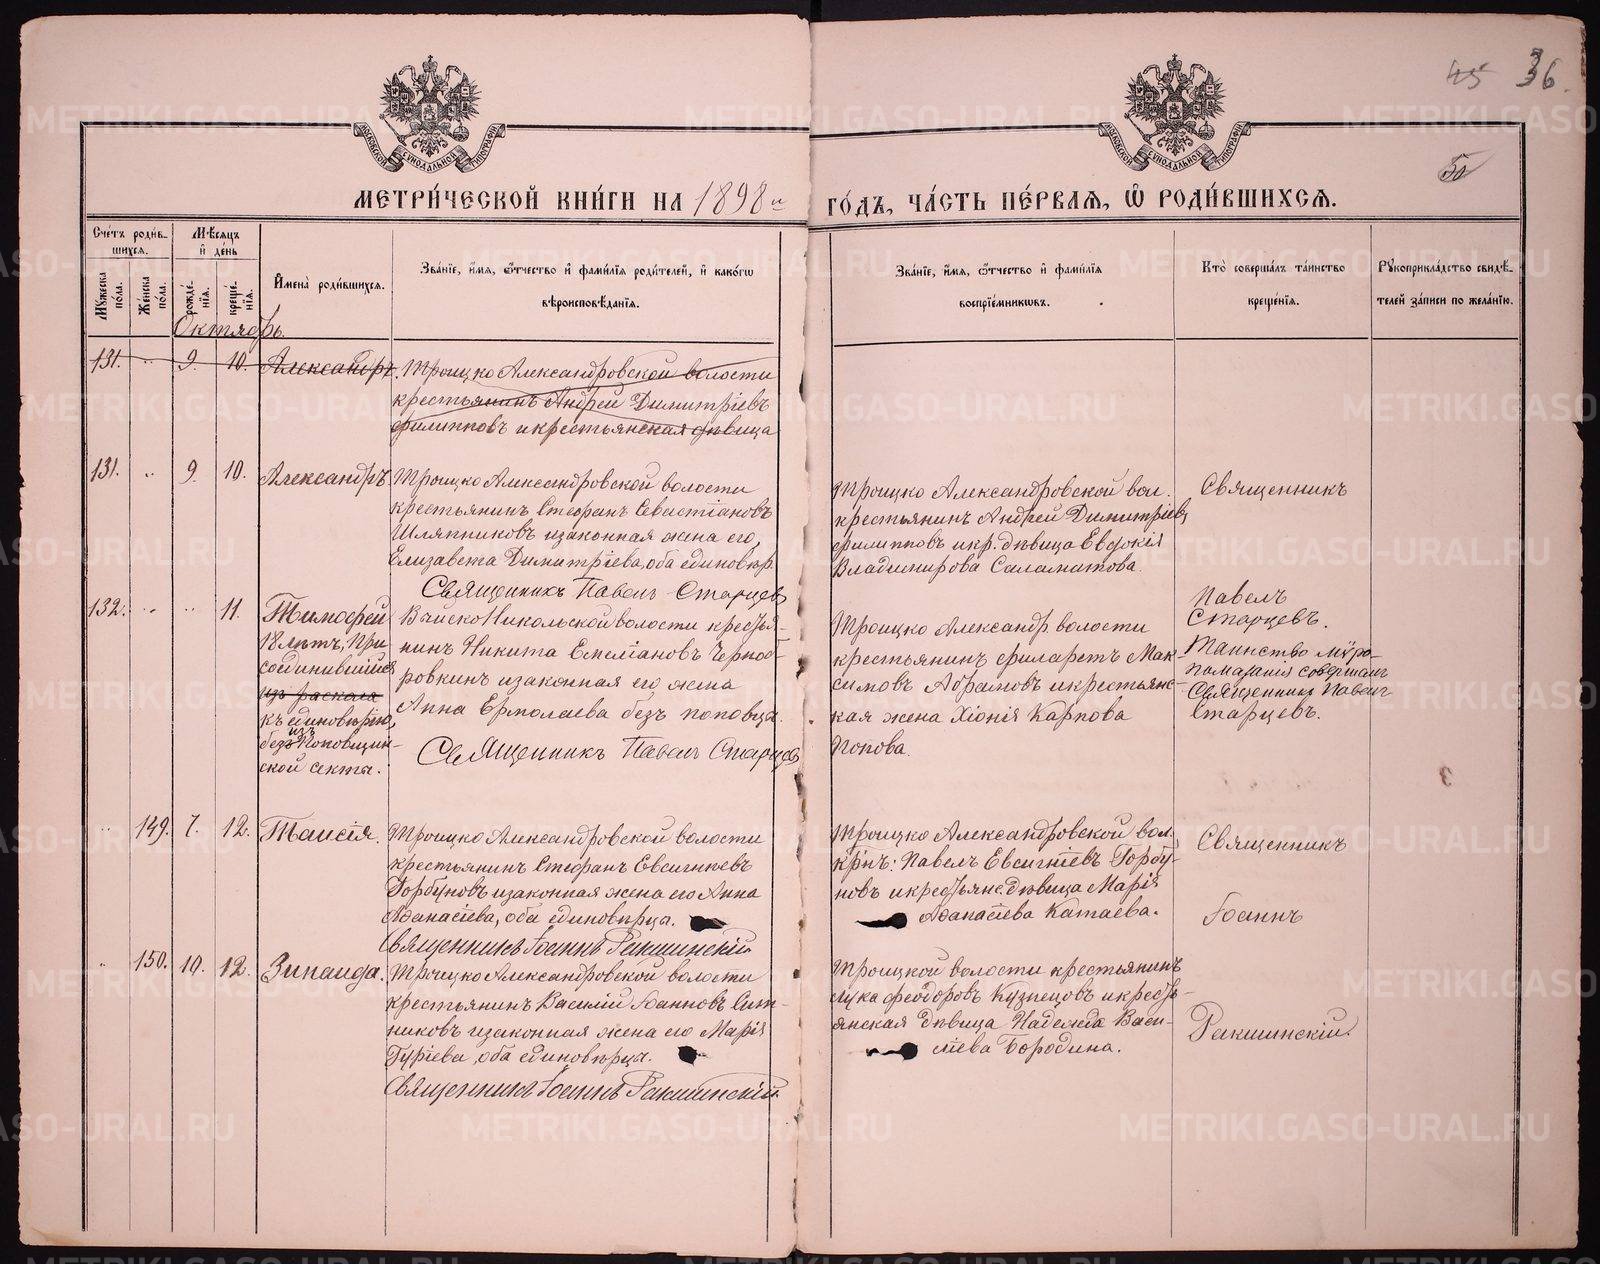 45 36.
50
МОСКОВСКОЙ СѴНОДАЛЬНОЙ ТИПОГРАФІИ
МОСКОВСКОЙ СѴНОДАЛЬНОЙ ТИПОГРАФІИ
МЕТРИ́ЧЕСКОЙ КНИ́ГИ НА 1898 й ГО́ДЪ, ЧА́СТЬ ПЕ́РВАѦ, Ѡ҆ РОДИ́ВШИХСѦ.
Сче́тъ роди́в-
шихсѧ.
Мѣ́сѧцъ
и҆ де́нь
Мꙋ́жеска
по́ла.
Же́нска
по́ла.
рожде́-
нїѧ.
креще́-
нїѧ.
И҆мена̀ роди́вшихсѧ.
Зва́нїе, и҆́мѧ, ѻ҆́тчество и҆ фами́лїѧ роди́телей, и҆ како́гѡ
вѣроисповѣ́данїѧ.
Зва́нїе, и҆́мѧ, ѻ҆́тчество и҆ фами́лїѧ
воспрїе́мникѡвъ.
Кто̀ соверша́лъ та́инство
креще́нїѧ.
Рꙋкоприкла́дство свидѣ́-
телей за́писи по жела́нїю.
Октябрь
131. „ 9. 10. Александръ. Троицко Александровской волости
крестьянинъ Андрей Димитріевъ
Филипповъ и крестьянская дѣвица
131. „ 9. 10. Александръ Троицко Александровской волости
крестьянинъ Стефанъ Севастіановъ
Шляпниковъ и законная жена его
Елизавета Димитріева, оба единовѣр.
Священникъ Павелъ Старцевъ
Троицко Александровской вол.
крестьянинъ Андрей Димитріевъ
Филипповъ и кр. дѣвица Евдокія
Владимирова Саламатова.
Священникъ
Павелъ
Старцевъ.
132. „ „ 11. Тимофей
18 лѣтъ, При
соединившійся
изъ раскола
къ единовѣрію,
изъ
безъ Поповщин-
ской секты.
Вайско Никольской волости крестья-
нинъ Никита Емеліановъ Черноб-
ровкинъ и законная его жена
Анна Ермолаева безъ поповцы.
Священникъ Павелъ Старцевъ
Троицко Александр. волости
крестьянинъ Филаретъ Мак
симовъ Абрамовъ и крестьянс-
кая жена Хіонія Карпова
Попова.
Таинство мѵро-
помазанія совершалъ
Священникъ Павелъ
Старцевъ.
„ 149. 7. 12. Таисія. Троицко Александровской волости
крестьянинъ Стефанъ Евсигніевъ
Горбуновъ и законная жена его Анна
Афанасіева, оба единовѣрца.
Священникъ Іоаннъ Ракшинскій
Троицко Александровской вол.
крнъ: Павелъ Евсигніевъ Горбу-
новъ и крестьянс. дѣвица Марія
Афанасіева Катаева.
Священникъ
Іоаннъ
„ 150. 10. 12. Зинаида. Троицко Александровской волости
крестьянинъ Василій Іоанновъ Сит-
никовъ и законная жена его Марія
Гуріева, оба единовѣрцы.
Священникъ Іоаннъ Ракшинскій
Троицкой волости крестьянинъ
Лука Феодоровъ Кузнецовъ и кресть-
янская дѣвица Надежда Васи-
ліева Бородина.
Ракшинскій.
METRIKI.GASO-URAL.RU